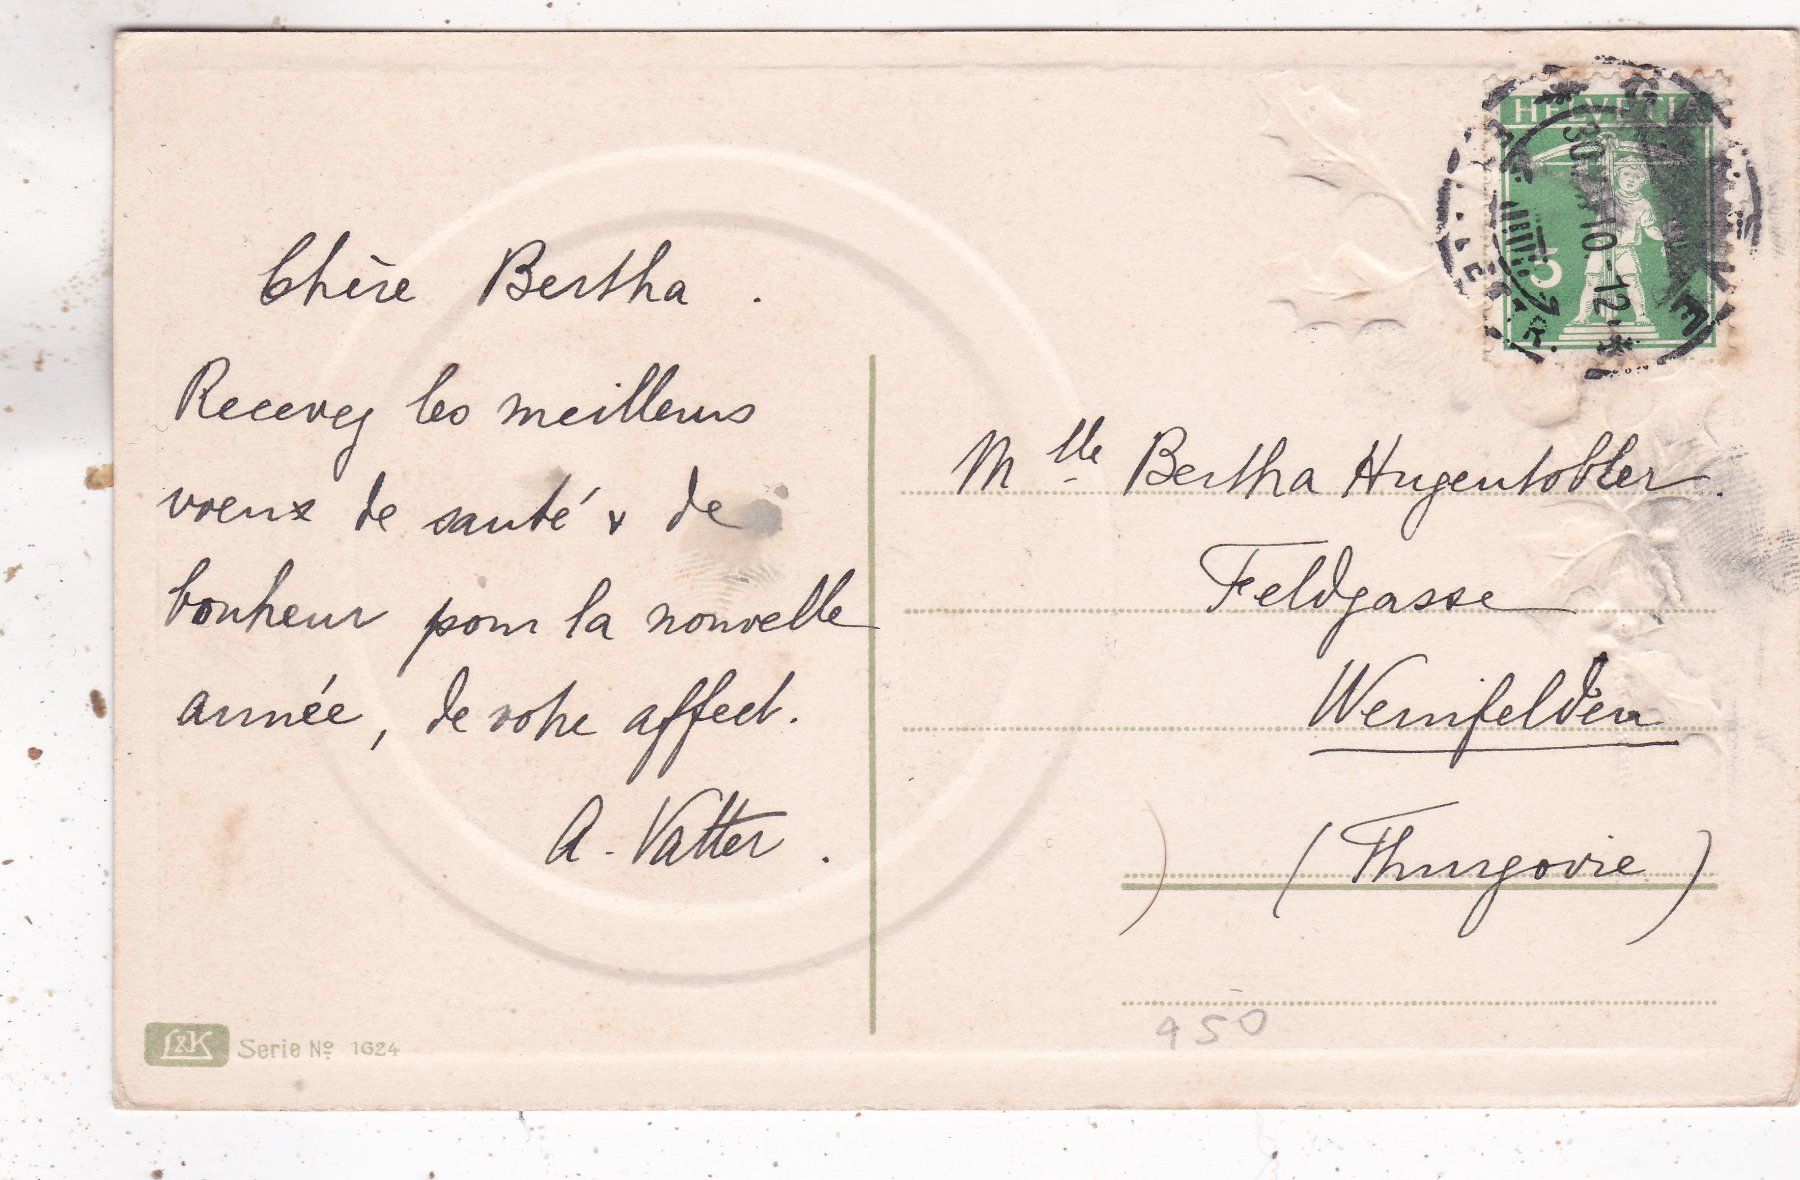 Chère Bertha.
Recevez les meilleurs
voeux de santé & de
bonheur pour la nouvelle
année, de votre affect.
A. Vatter.
HELVETIA
5
30
10-12
Mlle Bertha Hugentobler.
Feldgasse
Weinfelden
(Thurgovie)
950
L&K Serie No 1624